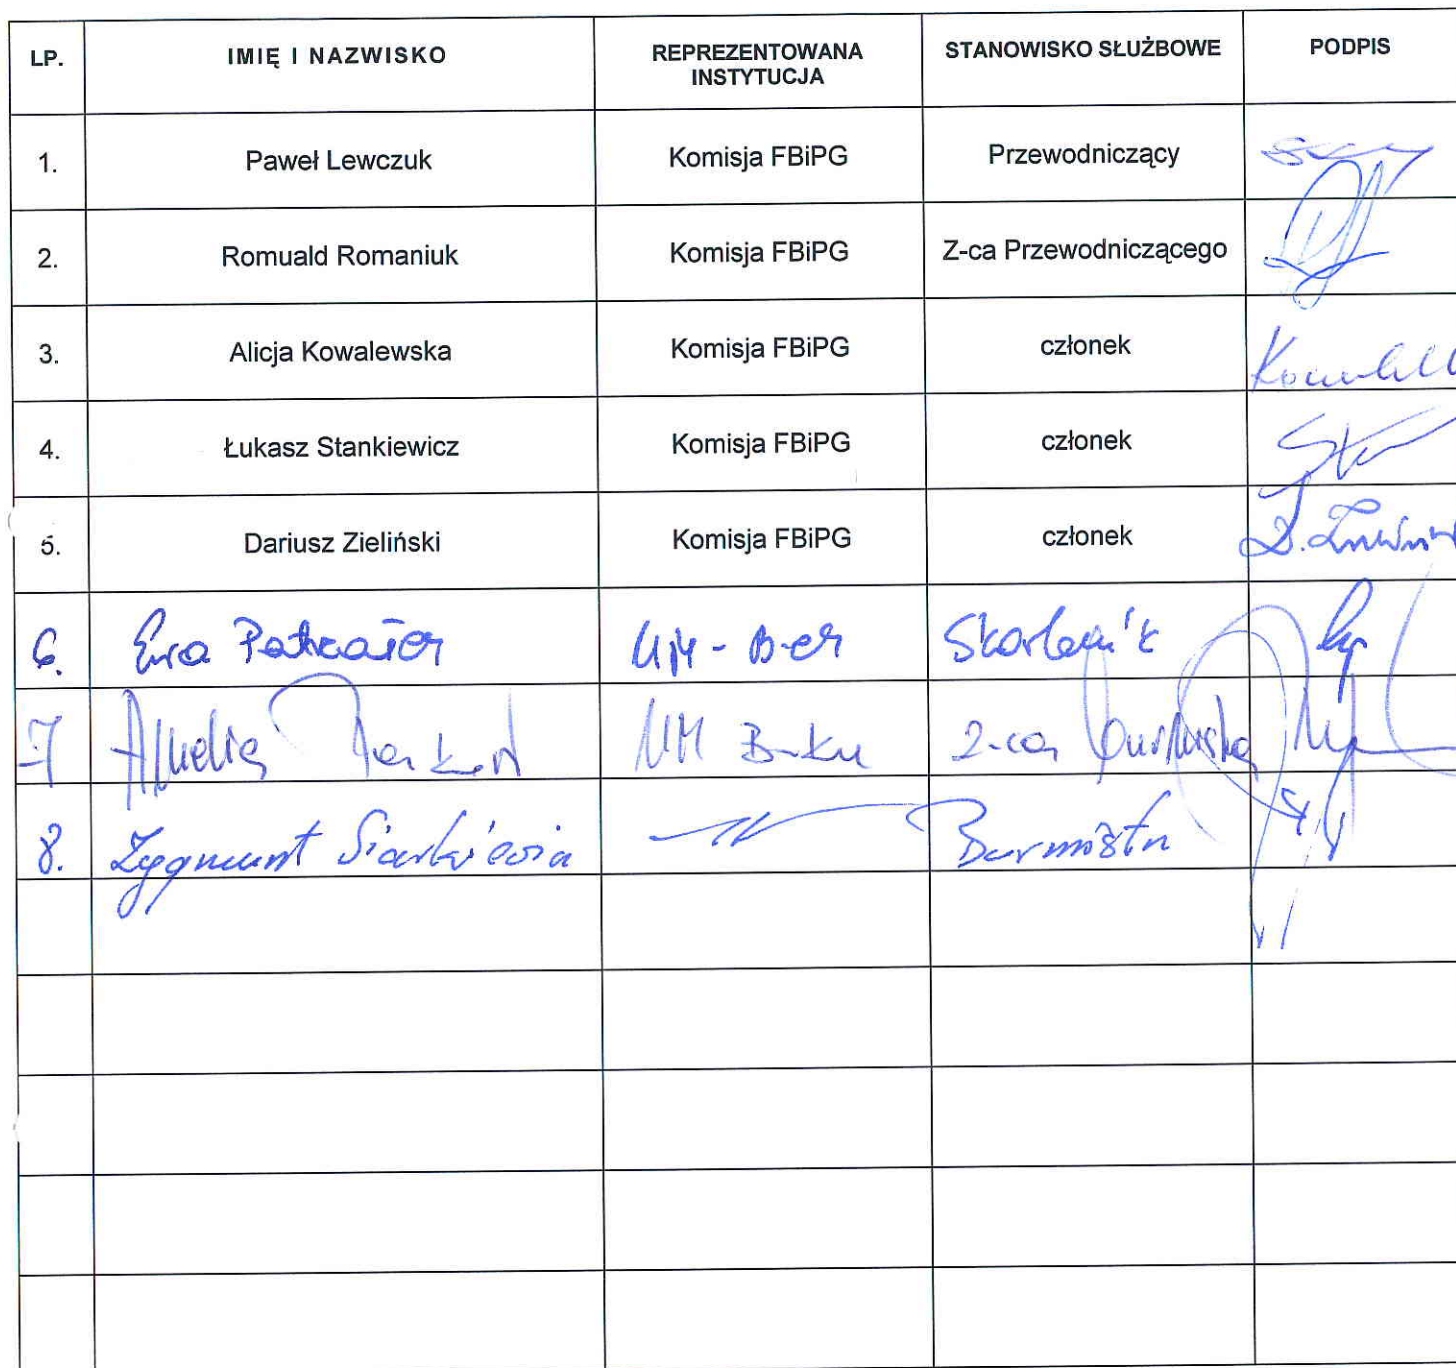 LP. IMIĘ I NAZWISKO REPREZENTOWANA INSTYTUCJA STANOWISKO SŁUŻBOWE PODPIS
1. Paweł Lewczuk Komisja FBiPG Przewodniczący
2. Romuald Romaniuk Komisja FBiPG Z-ca Przewodniczącego
3. Alicja Kowalewska Komisja FBiPG członek
4. Łukasz Stankiewicz Komisja FBiPG członek
5. Dariusz Zieliński Komisja FBiPG członek
6. Ewa UM - Skarbnik
7 Amelia UM Z-ca Burmistrza
8. Zygmunt Siarkiewicz Burmistrz